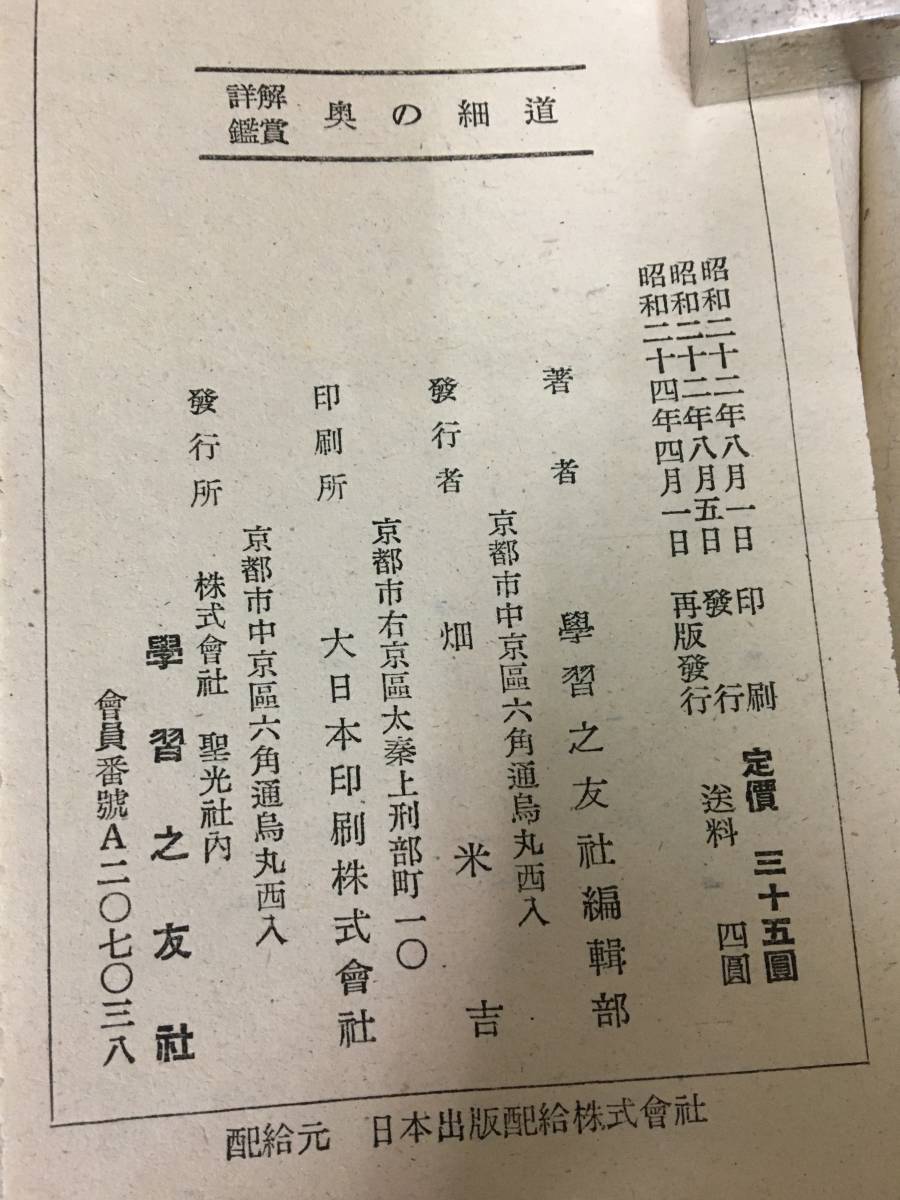 詳解
鑑賞
奥の細道
昭和二十二年八月一日 印刷
昭和二十二年八月五日 發行
昭和二十四年四月一日 再版發行
定價 三十五圓
送料 四圓
著者 學習之友社編輯部
京都市中京區六角通烏丸西入
發行者 畑米吉
京都市右京區太秦上刑部町一〇
印刷所 大日本印刷株式會社
京都市中京區六角通烏丸西入
株式會社 聖光社內
發行所 學習之友社
會員番號A二〇七〇三八
配給元 日本出版配給株式會社